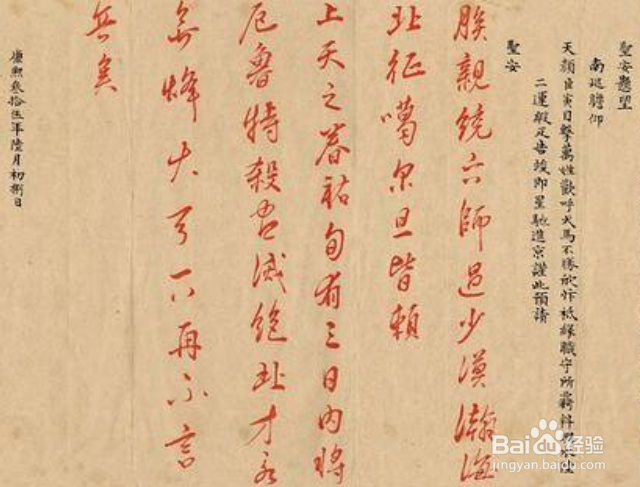 聖安懇望
南巡瞻仰
天顏臣寅目擊萬姓歡呼犬馬不勝欣忭祗緣職守所羈料理
二運報足告竣即星馳進京謹此預請
聖安
朕親統六師過少漠瀚海
北征噶尔旦皆賴
上天之眷祐旬有三日內將
厄魯特殺吾滅絕北方永
無烽火可以再不言
兵矣
康熙叁拾伍年陸月初捌日
Bai du 经验
jingyan.baidu.com